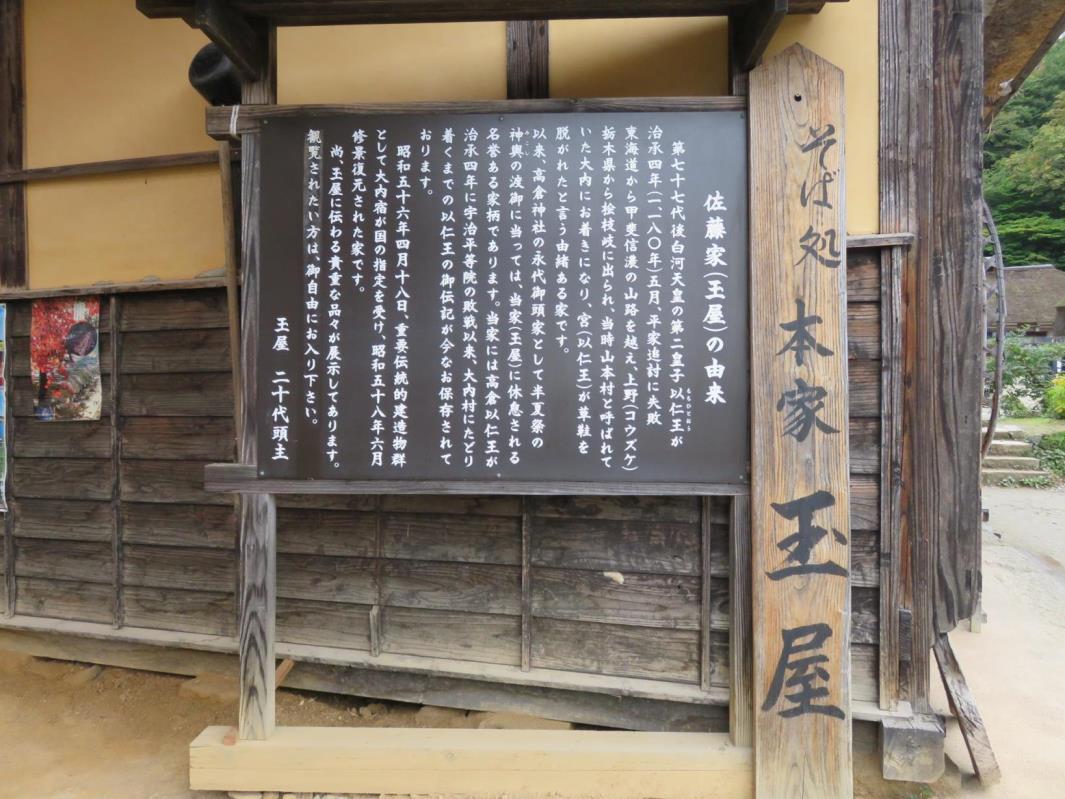 そば処 本家 玉屋
佐藤家(玉屋)の由来
第七十七代後白河天皇の第二皇子 以仁王が
もちひとおう
治承四年(一一八〇年)五月、平家追討に失敗
東海道から甲斐信濃の山路を越え、上野(コウズケ)
栃木県から桧枝岐に出られ、当時山本村と呼ばれて
いた大内にお着きになり、宮(以仁王)が草鞋を
脱がれたと言う由緒ある家です。
以来、高倉神社の永代御頭家として半夏祭の
みこし
神輿の渡御に当っては、当家(玉屋)に休息される
名誉ある家柄であります。当家には高倉以仁王が
治承四年に宇治平等院の敗戦以来、大内村にたどり
着くまでの以仁王の御伝記が今なお保存されて
おります。
昭和五十六年四月十八日、重要伝統的建造物群
として大内宿が国の指定を受け、昭和五十八年六月
修景復元された家です。
尚、玉屋に伝わる貴重な品々が展示してあります。
観覧されたい方は、御自由にお入り下さい。
玉屋 二十代頭主